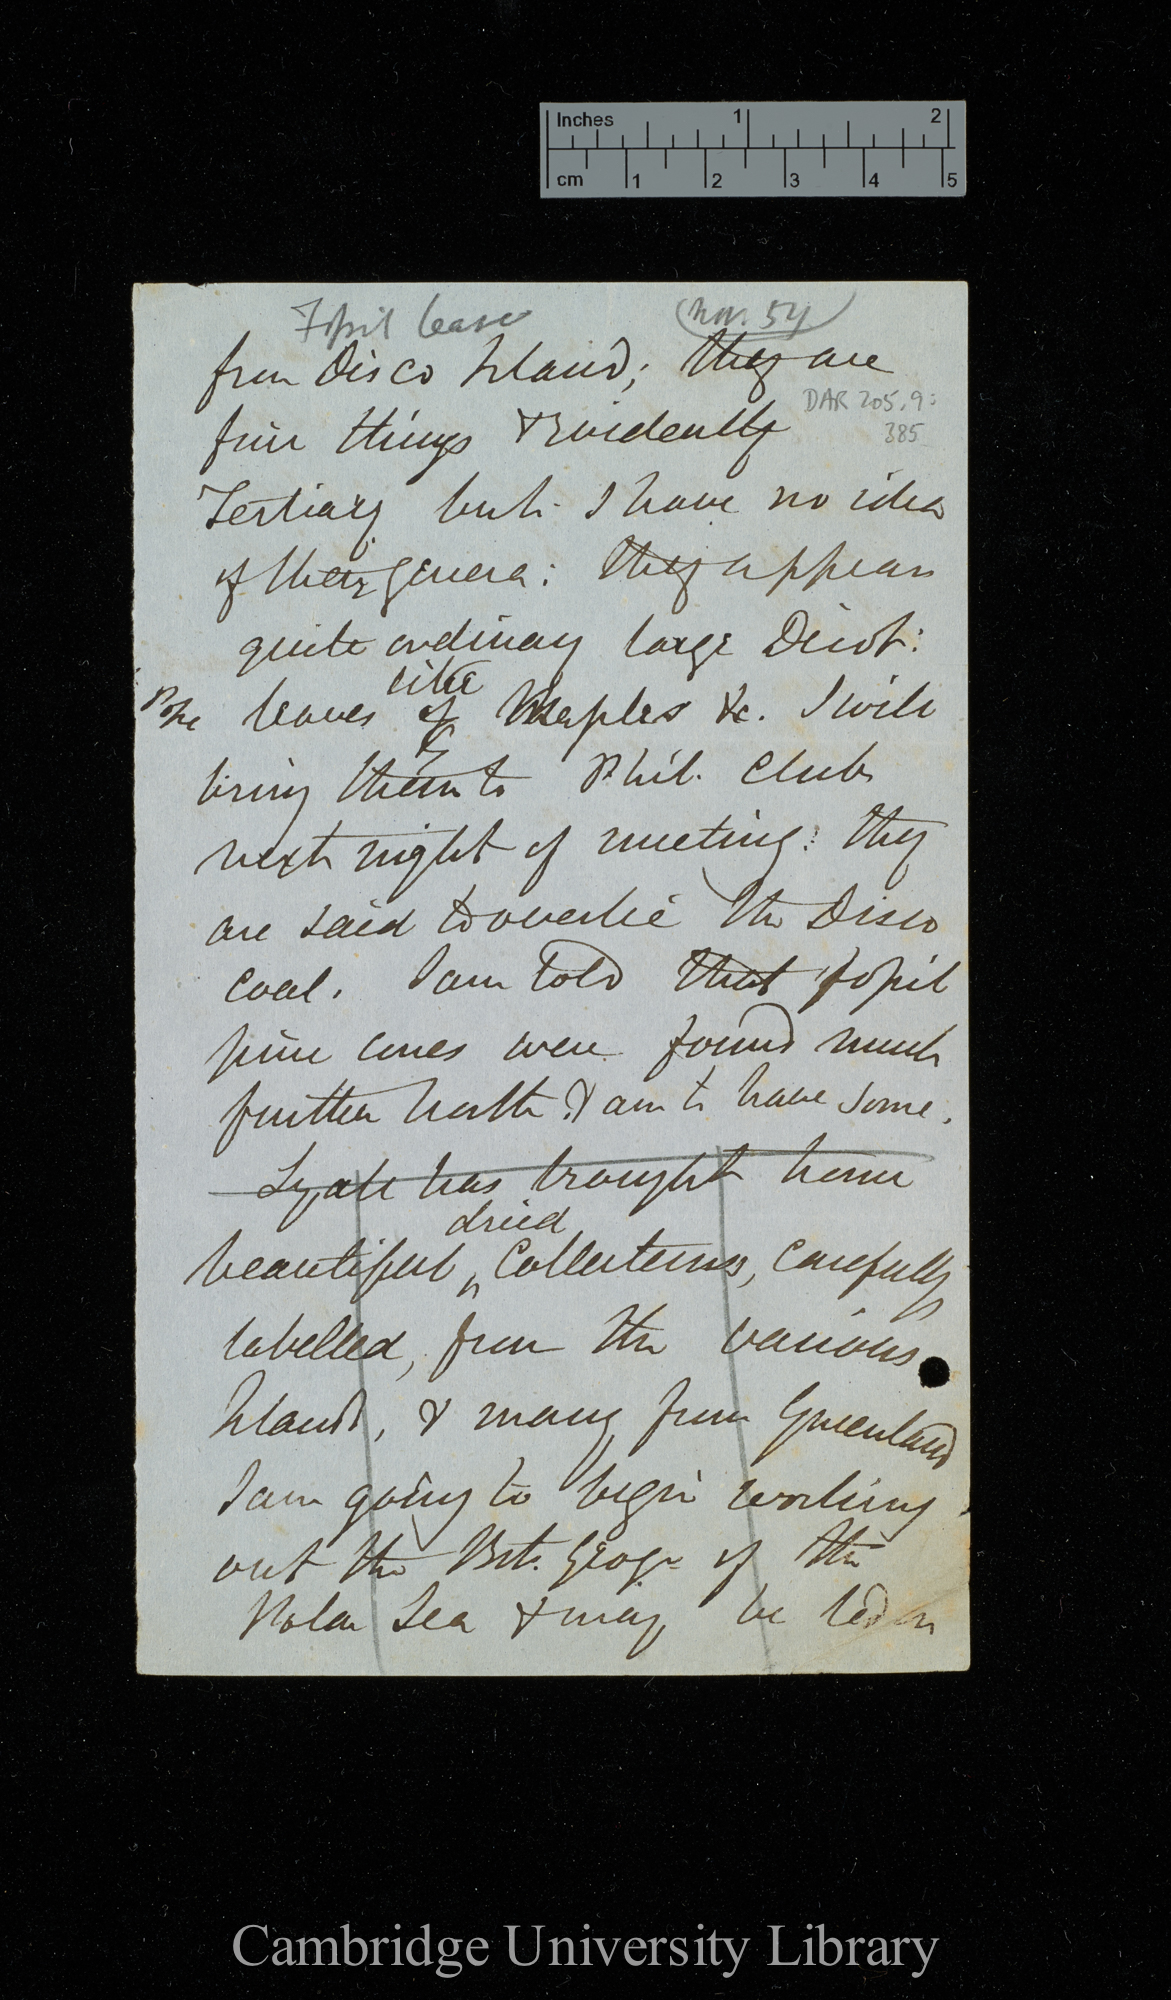 Inches 1 2
cm 1 2 3 4 5
Fossil leaves
Nov. 54
from Disco Island; they are
DAR 205.9:
385
fine things & evidently
Tertiary but I have no idea
of their genera: they appear
quite ordinary large Dicot:
like
leaves of Maples &c. I will
bring them to Phil. Club
next night of meeting: they
are said to overlie the Disco
coal. I am told that fossil
pine cones were found much
further north & am to have some.
Lyall has brought home
dried
beautiful Collections, carefully
labelled, from the various
Islands, & many from Greenland
I am going to begin working
out the Bot. Geogr. of the
Polar Sea & may be led on
Cambridge University Library